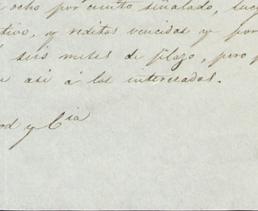 ocho por ciento señalado,
tivo, y reditos vencidos y por
seis meses de plazo, pero
asi á los interesados.
y Cia